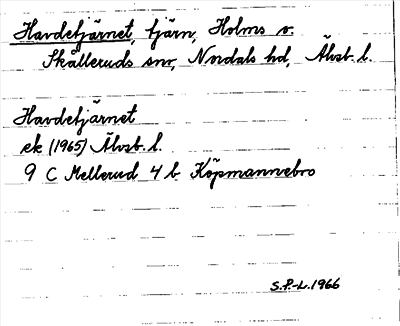 Havdetjärnet, tjärn, Holms s:
Skålleruds snr, Nordals hd, Älvsb. l.
Havdetjärnet
ek (1965) Älvsb. l.
9 C Mellerud 4 b Köpmannebro
S.P.-L. 1966